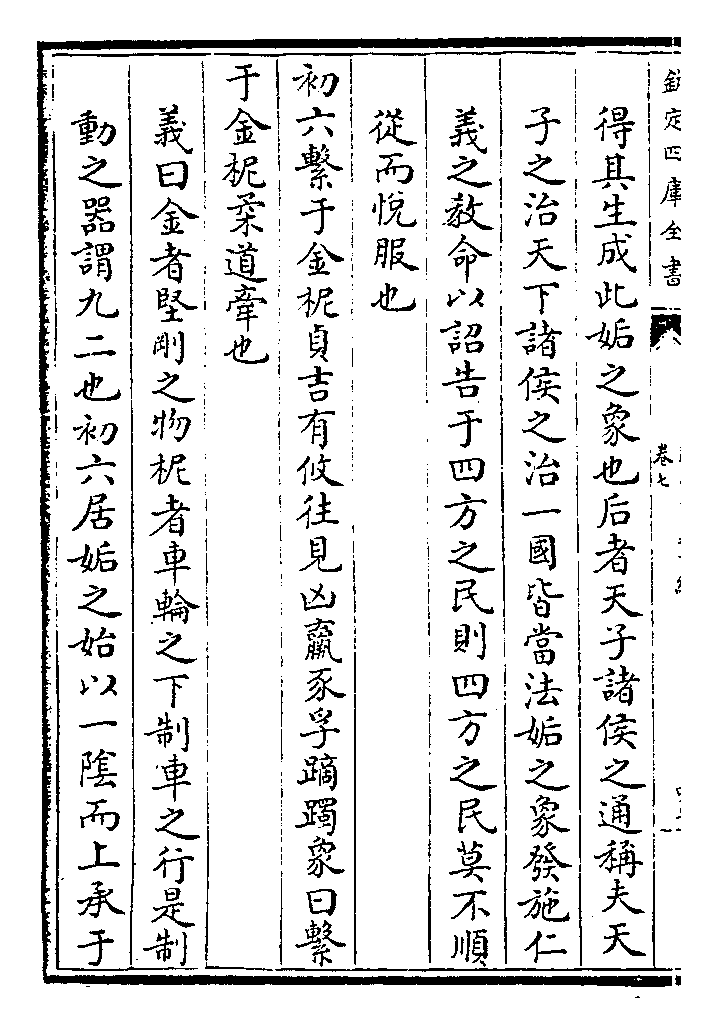 欽定四庫全書
卷七
得其生成此姤之象也后者天子諸侯之通稱夫天
子之治天下諸侯之治一國皆當法姤之象發施仁
義之教命以詔告于四方之民則四方之民莫不順
從而悅服也
初六繫于金柅貞吉有攸往見凶羸豕孚蹢躅象曰繫
于金柅柔道牽也
義曰金者堅剛之物柅者車輪之下制車之行是制
動之器謂九二也初六居姤之始以一隂而上承于